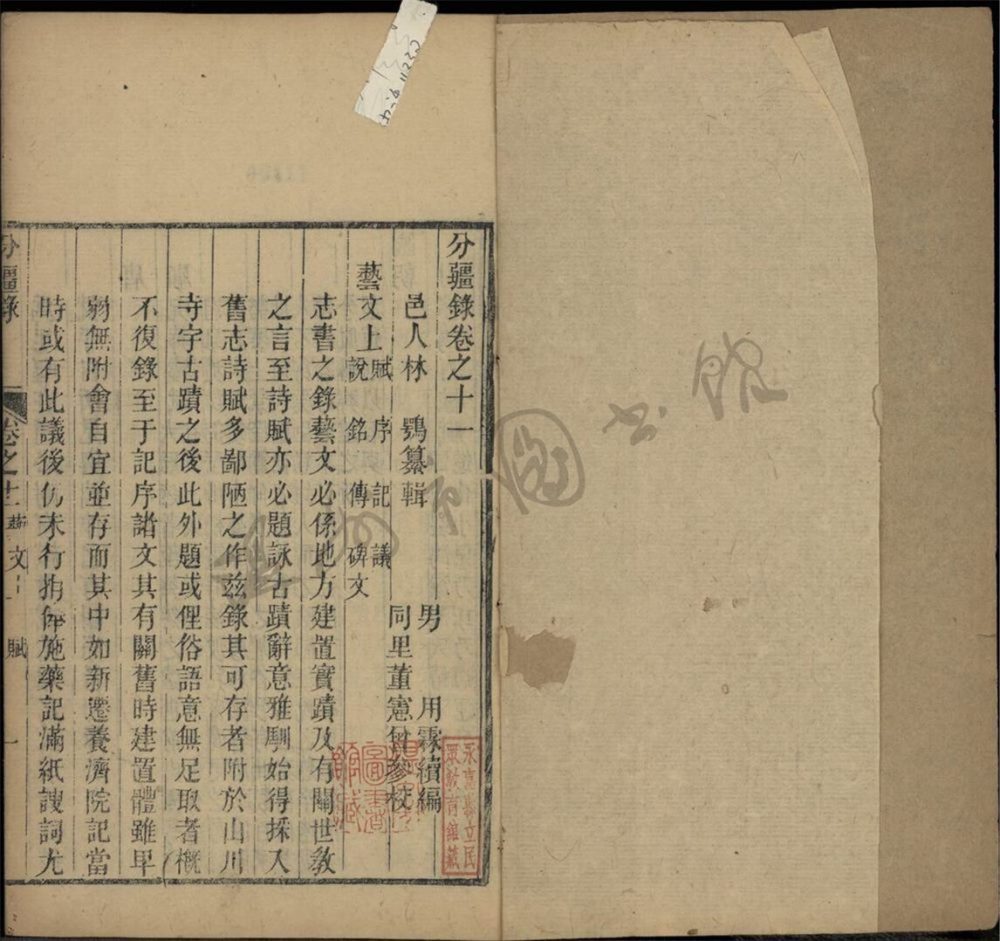 分疆錄卷之十一
邑人林 鶚纂輯 男 用霖續編
同里董憲曾參校
藝文上 賦 序 記 議
說 銘 傳 碑文
志書之錄藝文必係地方建置實蹟及有關世敎
之言至詩賦亦必題詠古蹟辭意雅馴始得採入
舊志詩賦多鄙陋之作兹錄其可存者附於山川
寺宇古蹟之後此外題或俚俗語意無足取者槪
不復錄至于記序諸文其有關舊時建置體雖卑
弱無附會自宜並存而其中如新遷養濟院記當
時或有此議後仍未行 施藥記滿紙諛詞尤
分疆錄 卷之十一 藝文上 賦 一
永嘉縣立民
眾敎育館藏
圖書館